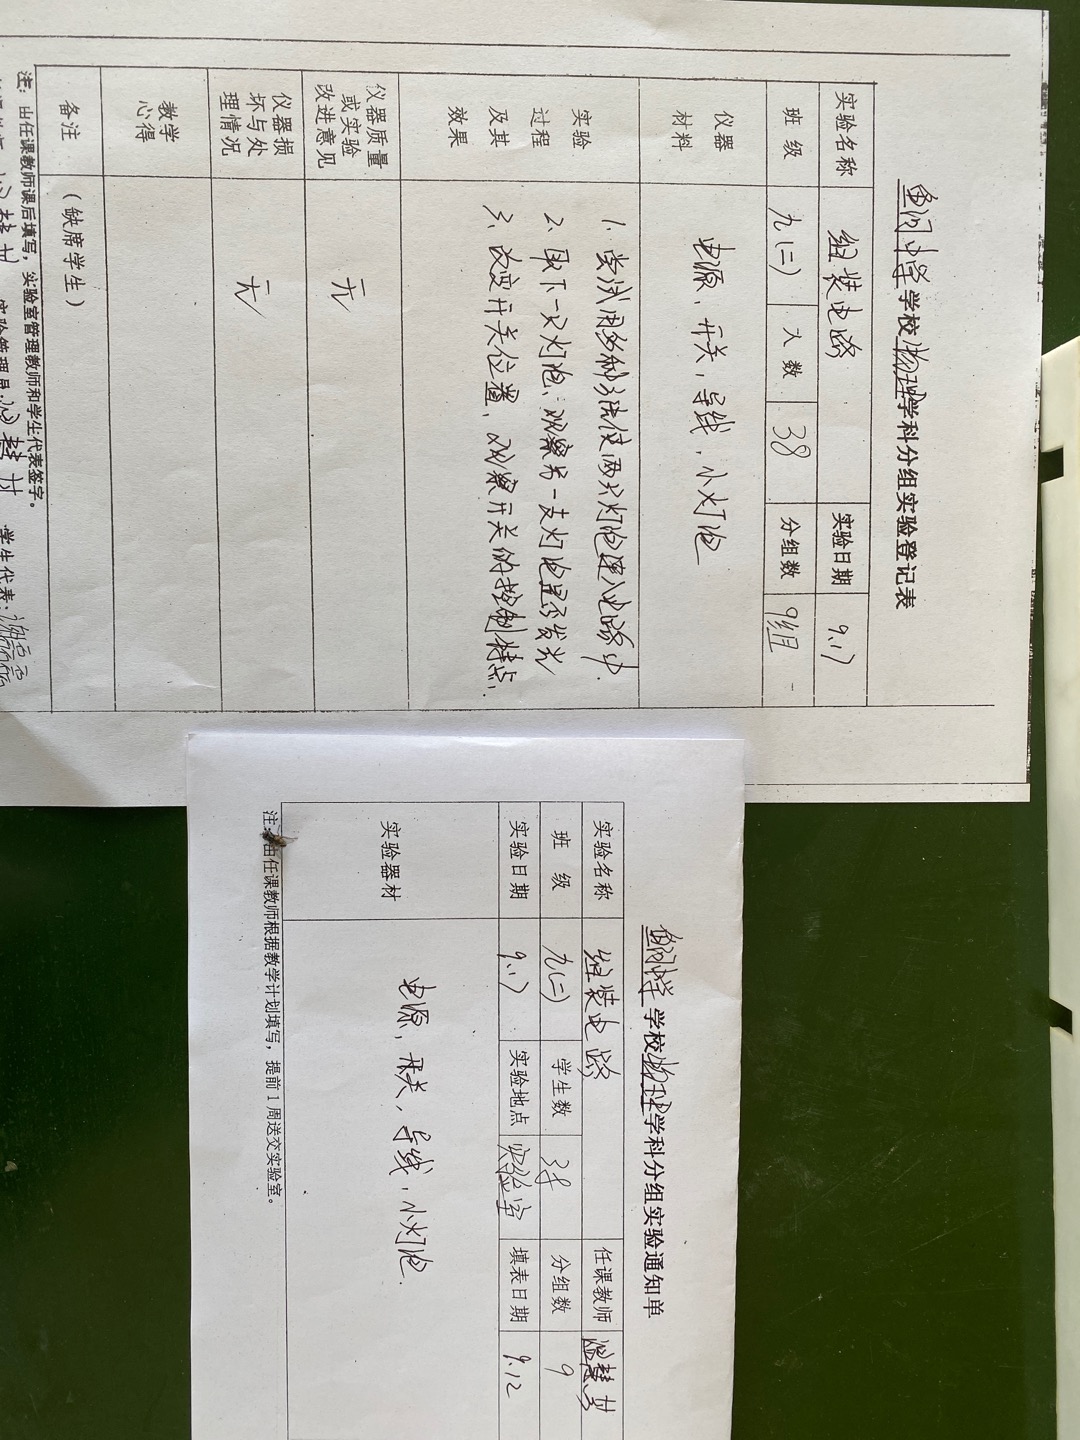 学校物理学科分组实验登记表
实验名称 组装电路 实验日期 9.17
班 级 九(二) 人 数 38 分组数 9组
仪器材料 电源、开关、导线、小灯泡
实验过程及其效果
1、尝试用多种方法使两只灯泡连入电路中.
2、取下一只灯泡,观察另一支灯泡是否发光
3、改变开关位置,观察开关的控制特点.
仪器质量或实验改进意见 无
仪器损坏与处理情况 无
教学心得
备注 (缺席学生)
注:由任课教师课后填写,实验室管理教师和学生代表签字。
学生代表:
学校物理学科分组实验通知单
实验名称 组装电路 任课教师
班 级 九(二) 学生数 38 分组数 9
实验日期 9.17 实验地点 实验室 填表日期 9.12
实验器材 电源,开关,导线,小灯泡.
注:由任课教师根据教学计划填写,提前1周送交实验室。